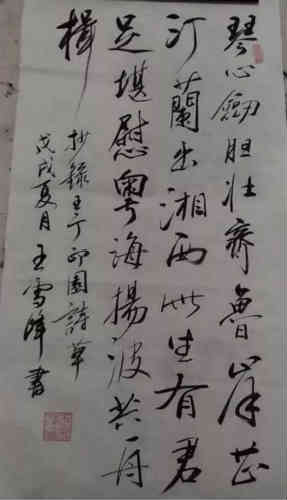 琴心劍胆壮齊魯岸芷
汀蘭出湘西此生有君
足堪慰粤海揚波共一舟
楫
抄録王丁印園詩草
戊戌夏月王雪峰書